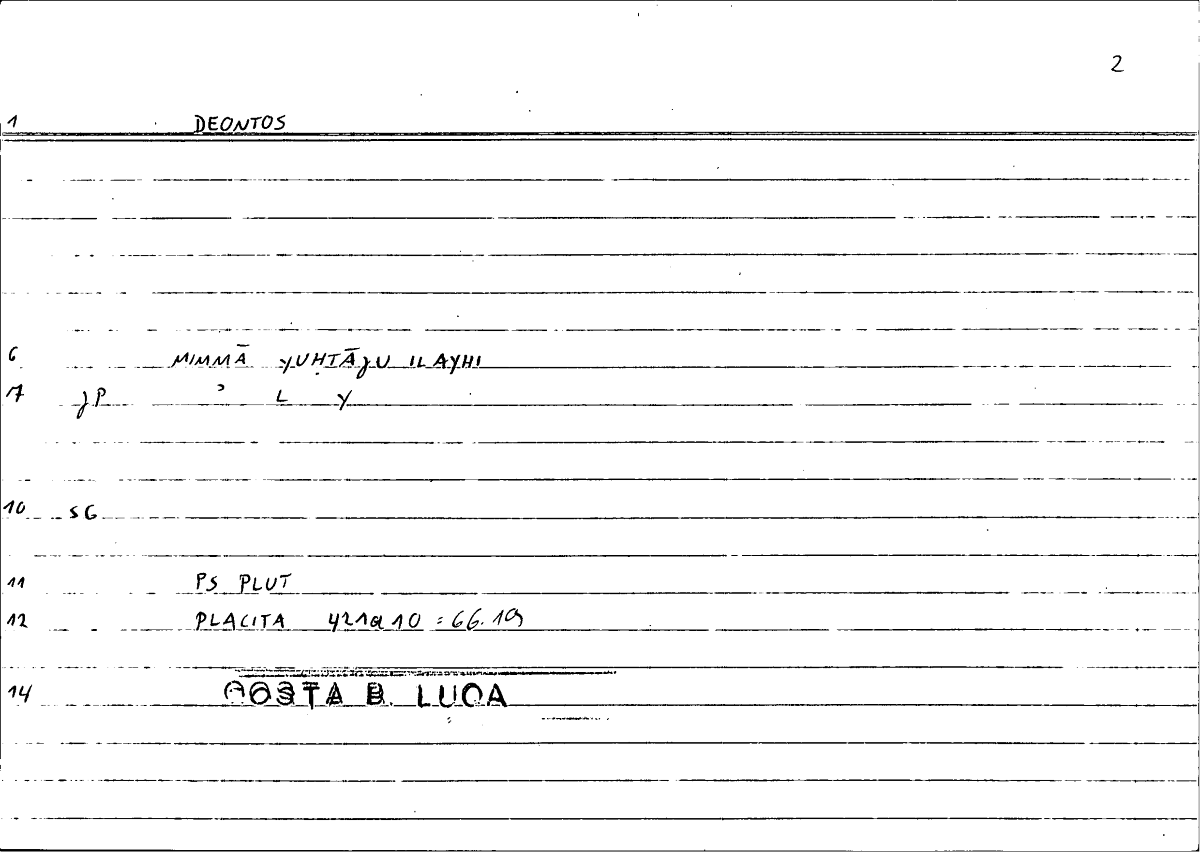 2
1 DEONTOS
6 MIMMĀ YUḤTĀJU ILAYHI
7 JP ʾ L Y
10 SG
11 PS PLUT
12 PLACITA 421a10 = 66.19
14 COSTA B. LUCA